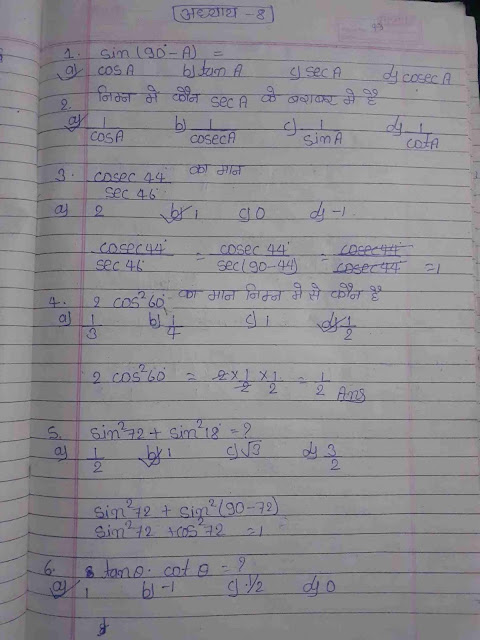 अध्याय - 8
1. sin (90°-A) =
a) cosA b) tan A c) sec A d) cosec A
2. निम्न मे कौन secA के बराबर मे है
a) 1/cosA b) 1/cosecA c) 1/sinA d) 1/cotA
3. cosec 44°/sec 46° का मान
a) 2 b) 1 c) 0 d) -1
cosec44°/sec 46° = cosec 44°/sec(90-44) = cosec44°/cosec44° = 1
4. 2 cos²60° का मान निम्न मे से कौन है
a) 1/3 b) 1/4 c) 1 d) 1/2
2 cos²60° = 2 × 1/2 × 1/2 = 1/2 Ans
5. sin²72 + sin²18° = ?
a) 1/2 b) 1 c) √3 d) 3/2
sin²72 + sin²(90-72)
sin²72 + cos²72 = 1
6. tanθ. cot θ = ?
a) 1 b) -1 c) 1/2 d) 0